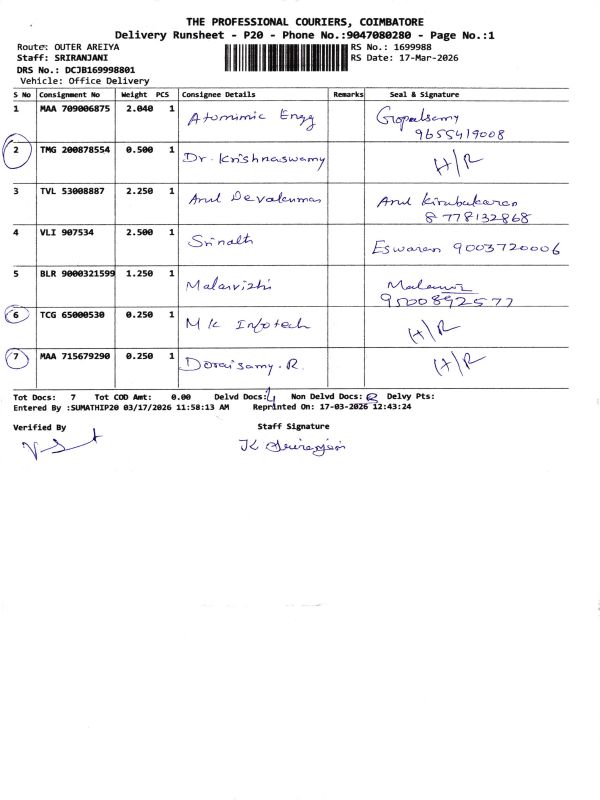 THE PROFESSIONAL COURIERS, COIMBATORE
Delivery Runsheet - P20 - Phone No.:9047080280 - Page No.:1
Route: OUTER AREIYA RS No.: 1699988
Staff: SRIRANJANI RS Date: 17-Mar-2026
DRS No.: DCJB169998801
Vehicle: Office Delivery
S No Consignment No Weight PCS Consignee Details Remarks Seal & Signature
1 MAA 709006875 2.040 1 Atomimic Engg Gopalsamy
9655419008
2 TMG 200878554 0.500 1 Dr. Krishnaswamy H/R
3 TVL 53008887 2.250 1 Arul Devakumar Arul Kirubakaran
8778132868
4 VLI 907534 2.500 1 Srinath Eswaran 9003720006
5 BLR 9000321599 1.250 1 Malarvizhi
9500892577
6 TCG 65000530 0.250 1 M K Infotech H/R
7 MAA 715679290 0.250 1 Doraisamy. R. H/R
Tot Docs: 7 Tot COD Amt: 0.00 Delvd Docs: 4 Non Delvd Docs: Delvy Pts:
Entered By :SUMATHIP20 03/17/2026 11:58:13 AM Reprinted On: 17-03-2026 12:43:24
Verified By Staff Signature